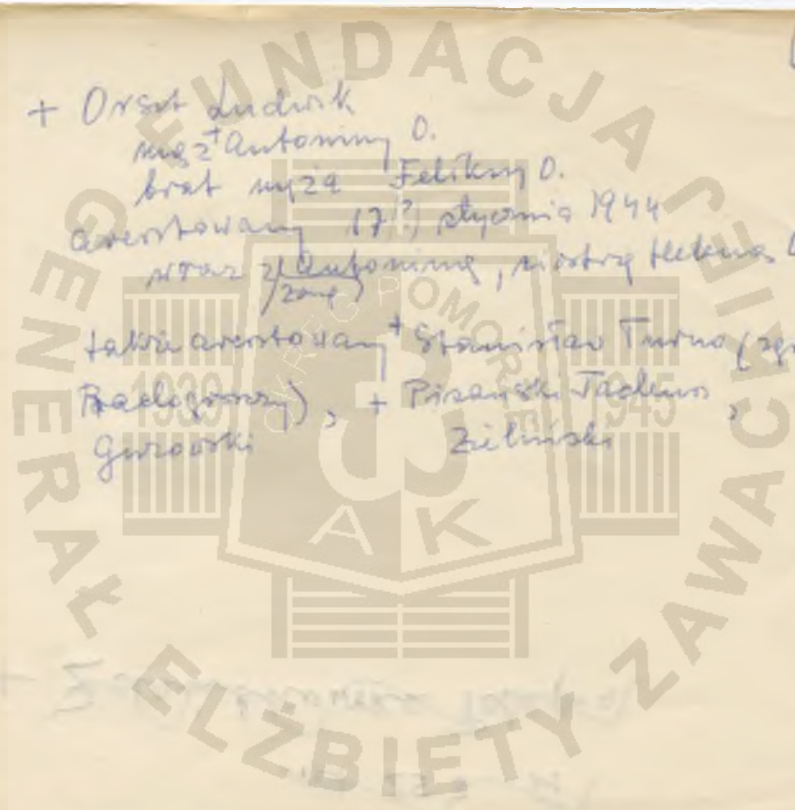 + Orset Ludwik
mąż + Antoniny O.
brat męża Feliksy O.
aresztowany 17(?) stycznia 1944
wraz z Antoniną, siostrą Heleną
żoną
także aresztowany + Stanisław Turno (zgi
Radogoszcz), + Pizański Tadeusz,
Gurowski Zieliński
FUNDACJA GENERAŁ ELŻBIETY ZAWACKIEJ
OKRĘG POMORZE
1939 1945
AK